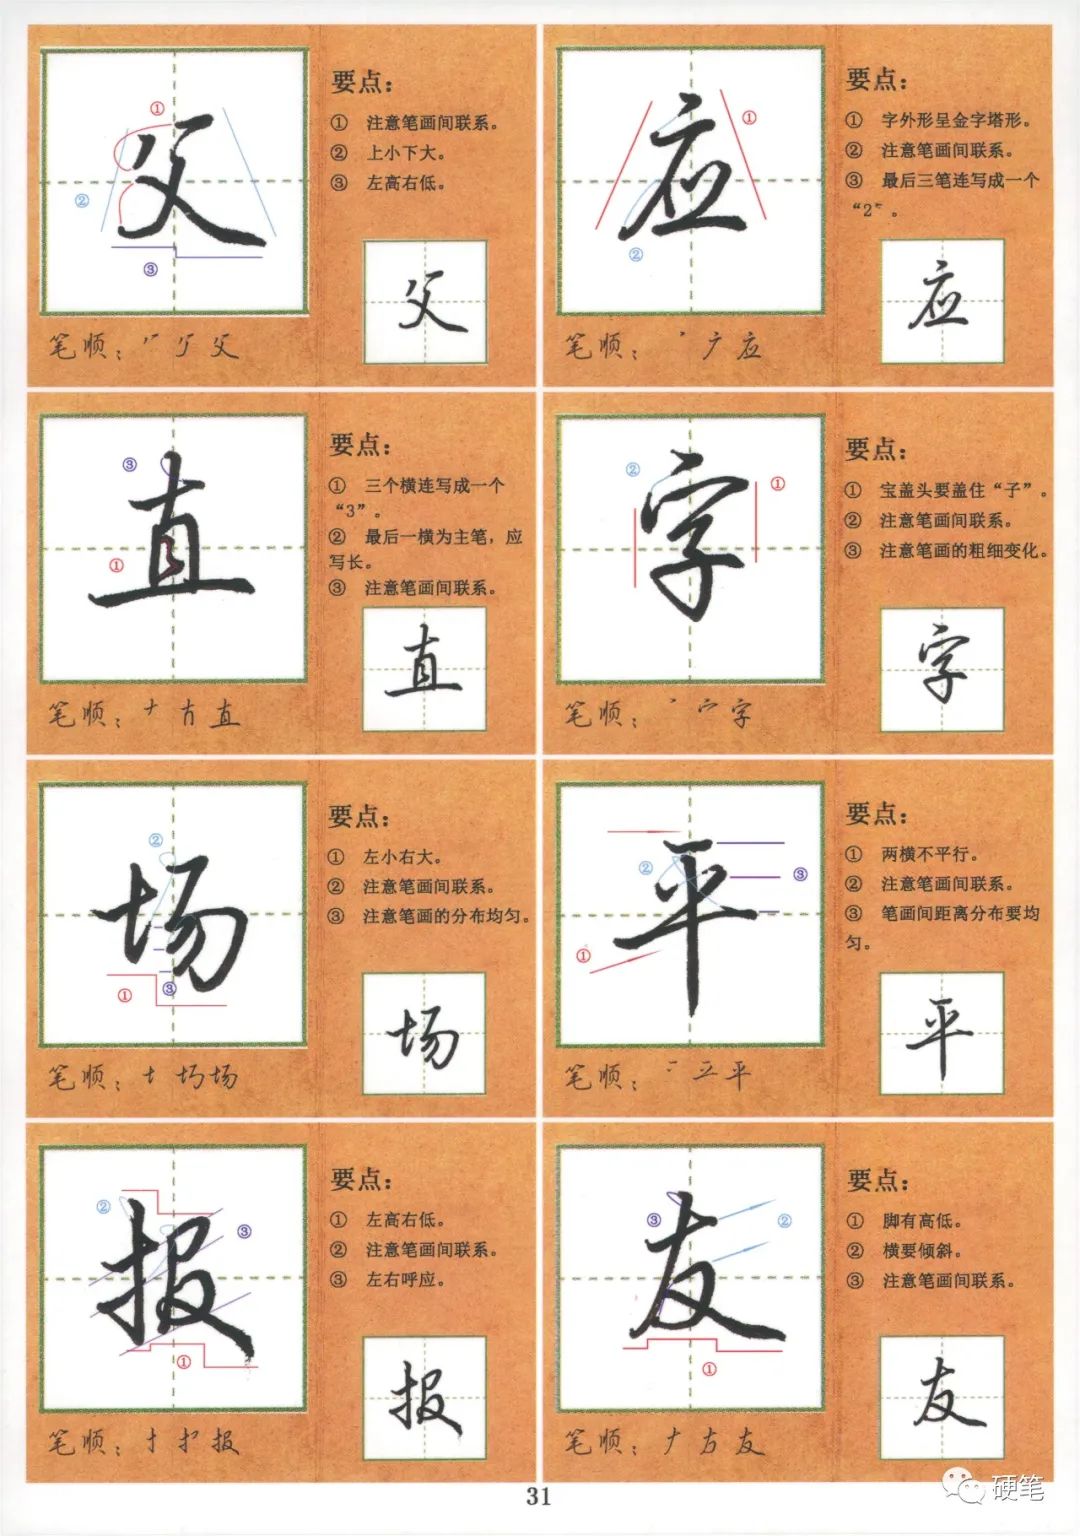 父
要点：
① 注意笔画间联系。
② 上小下大。
③ 左高右低。
①
②
③
父
笔顺： 父
应
要点：
① 字外形呈金字塔形。
② 注意笔画间联系。
③ 最后三笔连写成一个
“2”。
①
②
应
笔顺： 广 应
直
要点：
① 三个横连写成一个
“3”。
② 最后一横为主笔，应
写长。
③ 注意笔画间联系。
③
①
直
笔顺： 直
字
要点：
① 宝盖头要盖住“子”。
② 注意笔画间联系。
③ 注意笔画的粗细变化。
②
①
字
笔顺： 宀 字
场
要点：
① 左小右大。
② 注意笔画间联系。
③ 注意笔画的分布均匀。
②
①
③
场
笔顺： 场
平
要点：
① 两横不平行。
② 注意笔画间联系。
③ 笔画间距离分布要均
匀。
②
③
①
平
笔顺： 平
报
要点：
① 左高右低。
② 注意笔画间联系。
③ 左右呼应。
②
③
①
报
笔顺： 报
友
要点：
① 脚有高低。
② 横要倾斜。
③ 注意笔画间联系。
③
②
①
友
笔顺： 友
31
硬笔